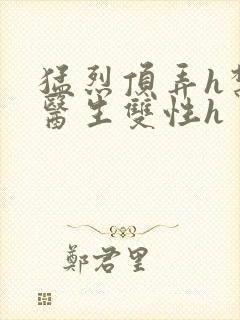 猛烈頂弄h
醫生雙性h
鄭君里